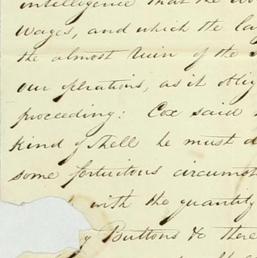 intelligence that the wo
wages, and which the la
the almost ruin of the
our operations, as it oblig
proceeding: Cox said
kind of shell he must d
some fortuitous circumst
with the quantity
y Buttons &c there